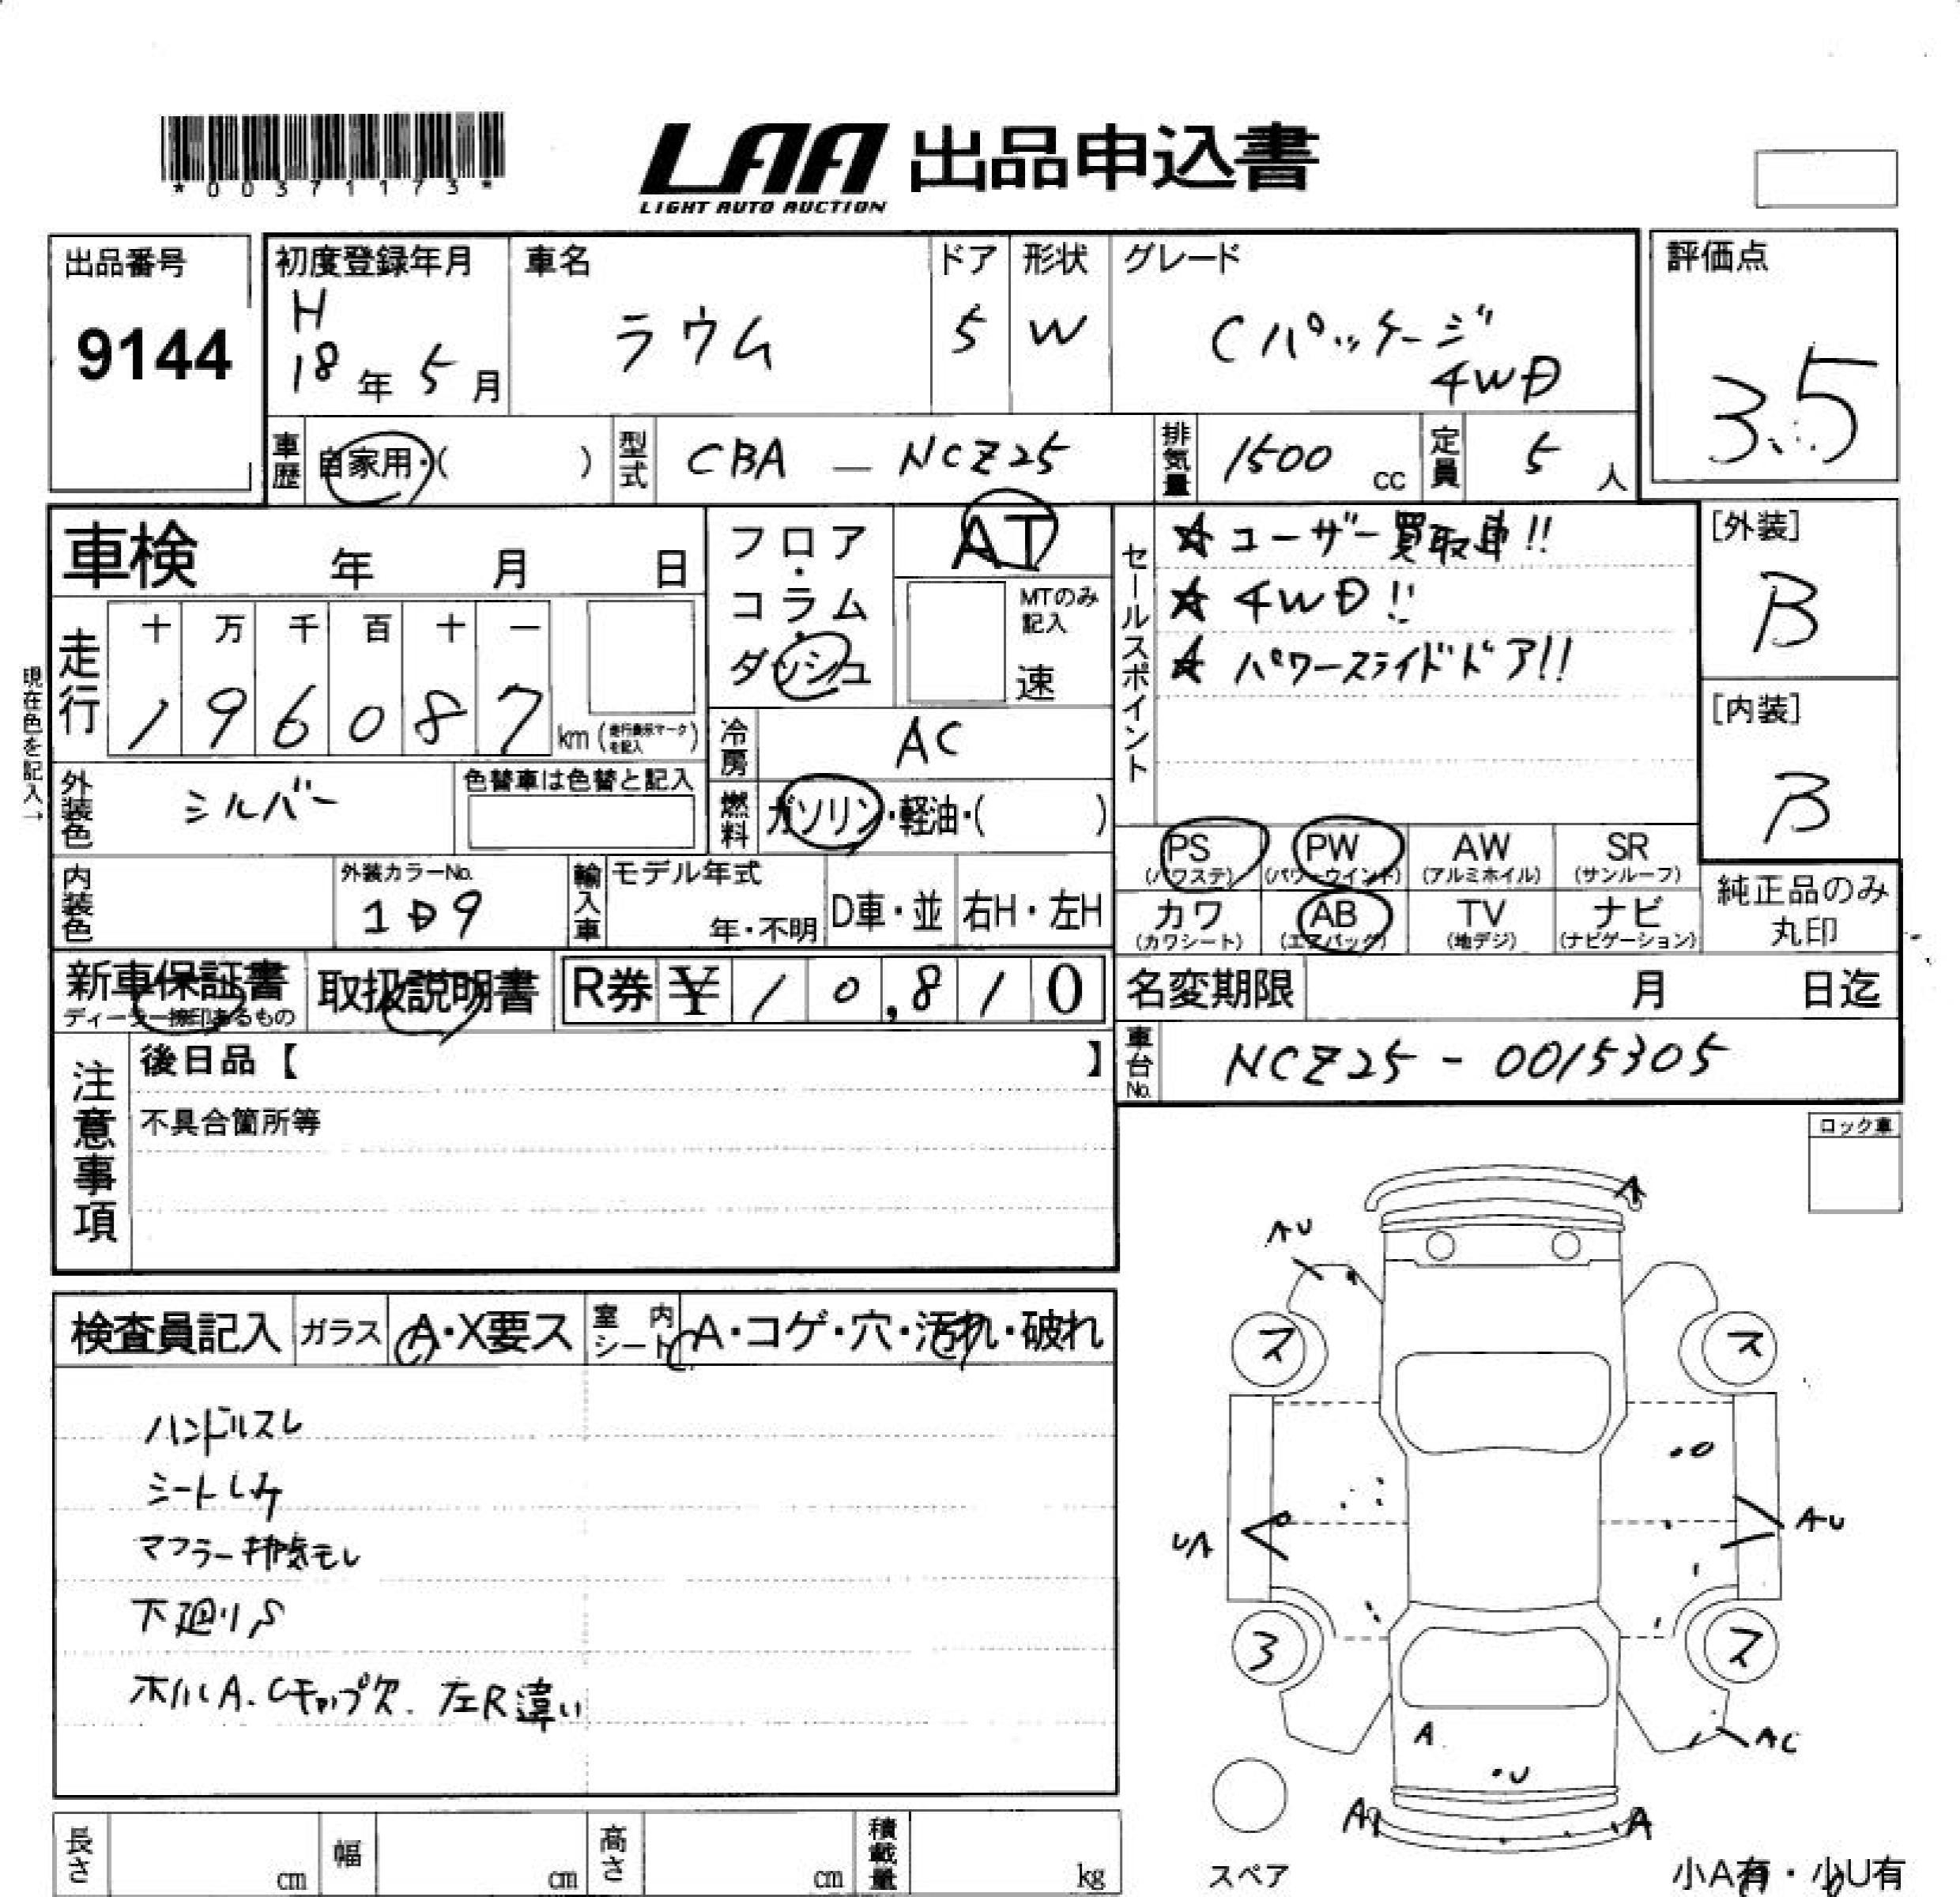 *00371173*
LAA 出品申込書
LIGHT AUTO AUCTION
出品番号
9144
初度登録年月
H
18年 5月
車名
ラウム
ドア
5
形状
W
グレード
Cパッケージ
4WD
評価点
3.5
車歴 自家用・( )
型式 CBA — NCZ25
排気量 1500 cc
定員 5 人
車検 年 月 日
フロア・コラム・ダッシュ
AT
MTのみ記入
速
セールスポイント
☆ユーザー買取車!!
☆4WD!!
☆パワースライドドア!!
[外装]
B
[内装]
B
現在色を記入→
走行
十 万 千 百 十 一
1 9 6 0 8 7 km (走行表示マークを記入)
冷房 AC
外装色 シルバー
色替車は色替と記入
燃料 ガソリン・軽油・( )
PS (パワステ)
PW (パワーウインド)
AW (アルミホイル)
SR (サンルーフ)
カワ (カワシート)
AB (エアバッグ)
TV (地デジ)
ナビ (ナビゲーション)
純正品のみ
丸印
内装色
外装カラーNo.
1D9
輸入車
モデル年式
年・不明
D車・並
右H・左H
新車保証書
ディーラー捺印あるもの
取扱説明書
R券 ¥ 10,810
名変期限 月 日迄
車台No. NCZ25 - 0015305
注意事項
後日品【 】
不具合箇所等
ロック車
検査員記入
ガラス A・X要ス
室内シート A・コゲ・穴・汚れ・破れ
ハンドルスレ
シートシミ
マフラー排気モレ
下廻りS
ホイルA、Cキャップ欠、左R違い
A
AU
ス
ス
・U
UA
AU
3
ス
A
AC
・U
A
A
スペア
小A有・小U有
長さ cm
幅 cm
高さ cm
積載量 kg